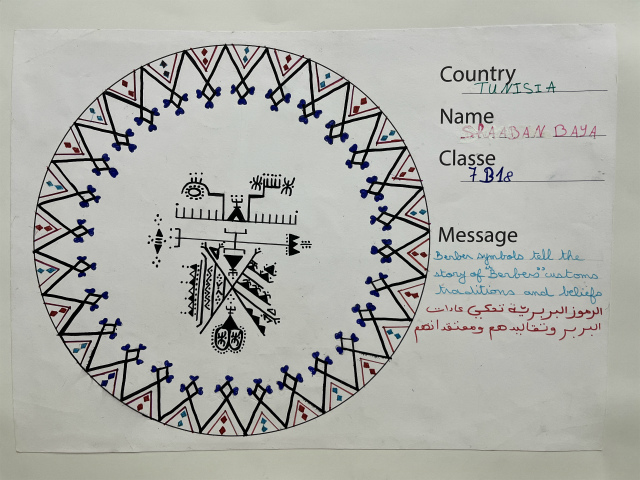 Country
TUNISIA
Name
SHAABAN BAYA
Classe
7B18
Message
Berber symbols tell the
story of "Berbers" customs
traditions and beliefs
الرموز البربرية تحكي عادات
البربر وتقاليدهم ومعتقداتهم